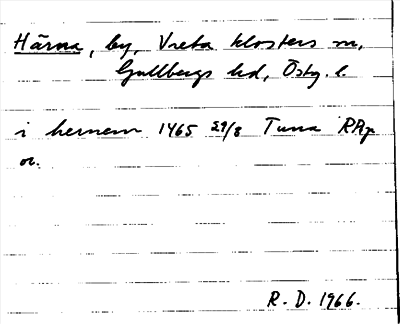 Härna, by, Vreta klosters sn,
Gullbergs hd, Östg. l.
i hernem 1465 29/8 Tuna RRp
or.
R. D. 1966.